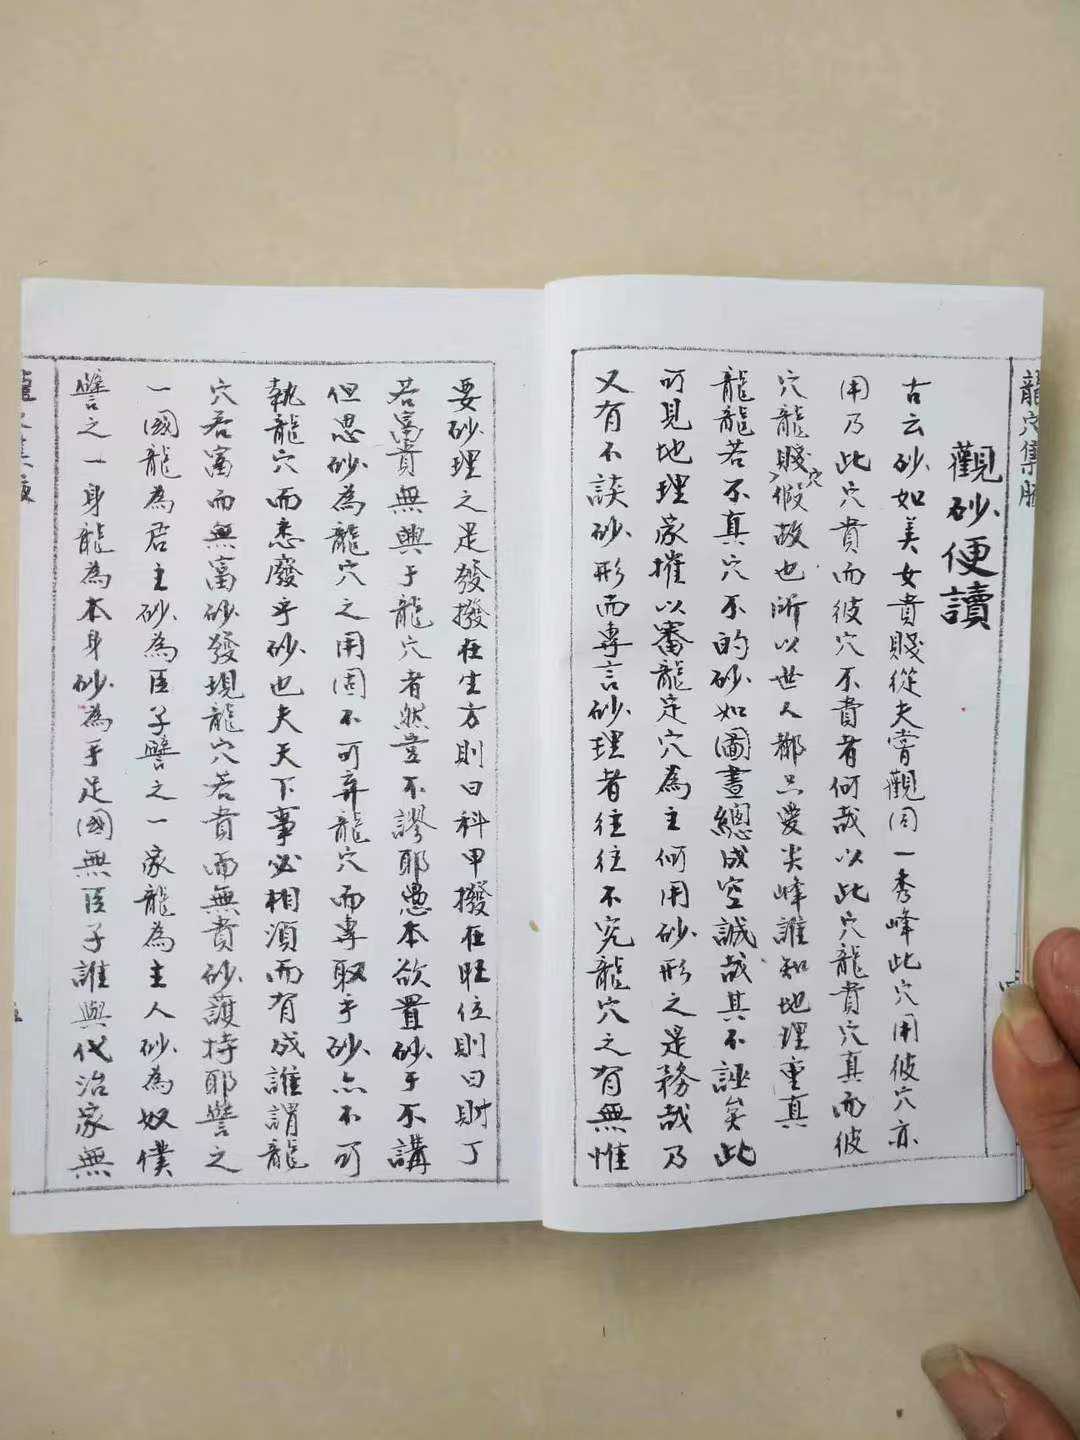 龍穴集
觀砂便讀
古云砂如美女貴賤從夫嘗觀同一秀峰此穴用彼穴亦
用乃此穴貴而彼穴不貴者何哉以此穴龍貴穴真而彼
穴龍賤穴假故也所以世人都只愛尖峰誰知地理重真
龍龍若不真穴不的砂如圖畫總成空誠哉其不誣矣此
可見地理家摧以審龍定穴為主何用砂形之是務哉乃
又有不談砂形而專言砂理者往往不究龍穴之有無惟
要砂理之是發撥在生方則曰科甲撥在旺位則曰財丁
若富貴無興于龍穴者然豈不謬耶愚本欲置砂于不講
但思砂為龍穴之用固不可弃龍穴而專取乎砂亦不可
執龍穴而悉廢乎砂也夫天下事必相須而有成誰謂龍
穴若富而無富砂發現龍穴若貴而無貴砂護持耶譬之
一國龍為君主砂為臣子譬之一家龍為主人砂為奴僕
譬之一身龍為本身砂為手足國無臣子誰與代治家無